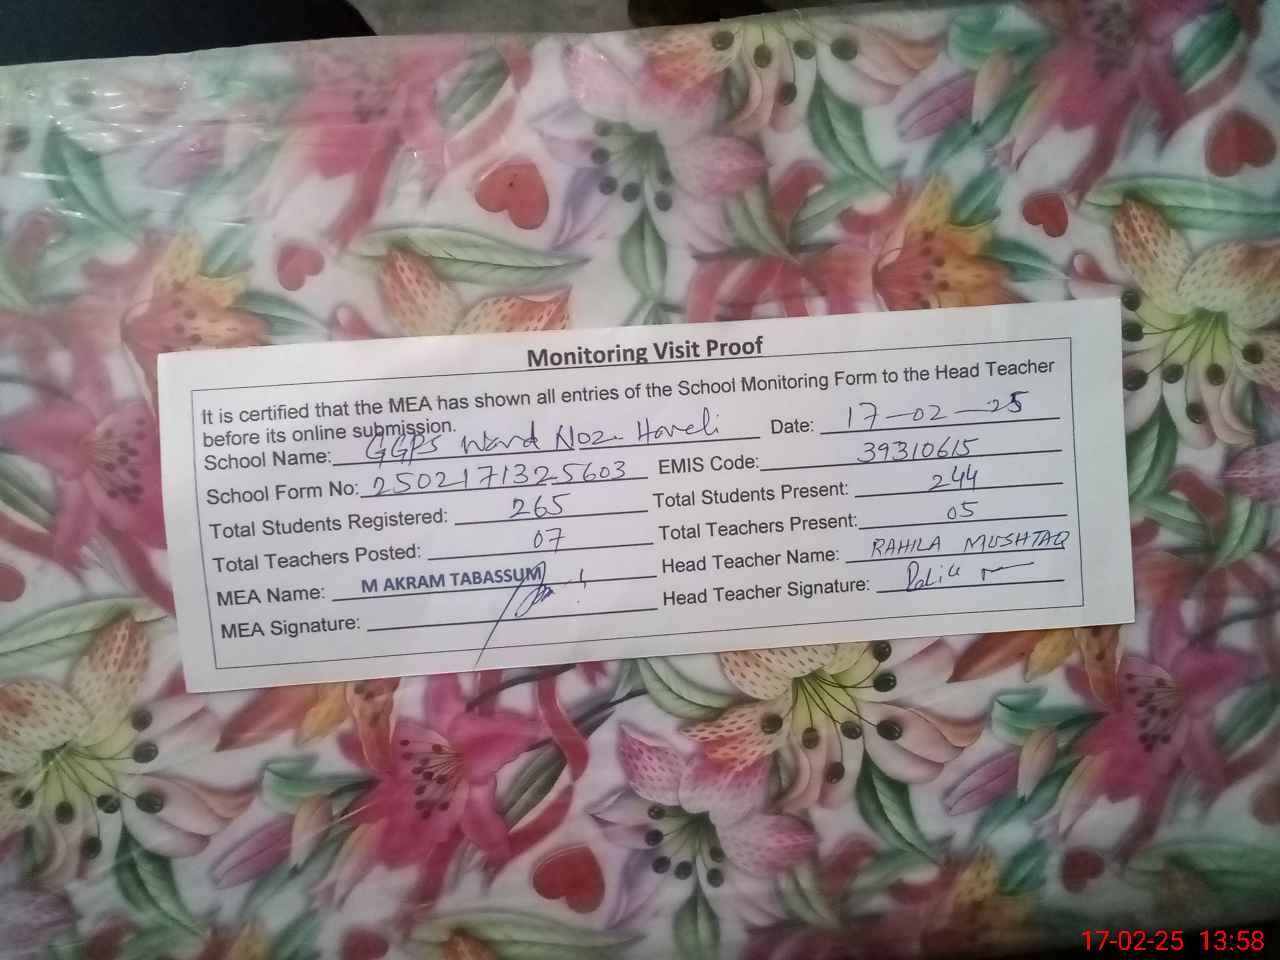 Monitoring Visit Proof
It is certified that the MEA has shown all entries of the School Monitoring Form to the Head Teacher
before its online submission.
School Name: GGPS Ward No2 Haveli Date: 17-02-25
School Form No: 2502171325603 EMIS Code: 39310615
Total Students Registered: 265 Total Students Present: 244
Total Teachers Posted: 07 Total Teachers Present: 05
MEA Name: M AKRAM TABASSUM Head Teacher Name: RAHILA MUSHTAQ
MEA Signature: Head Teacher Signature:
17-02-25 13:58